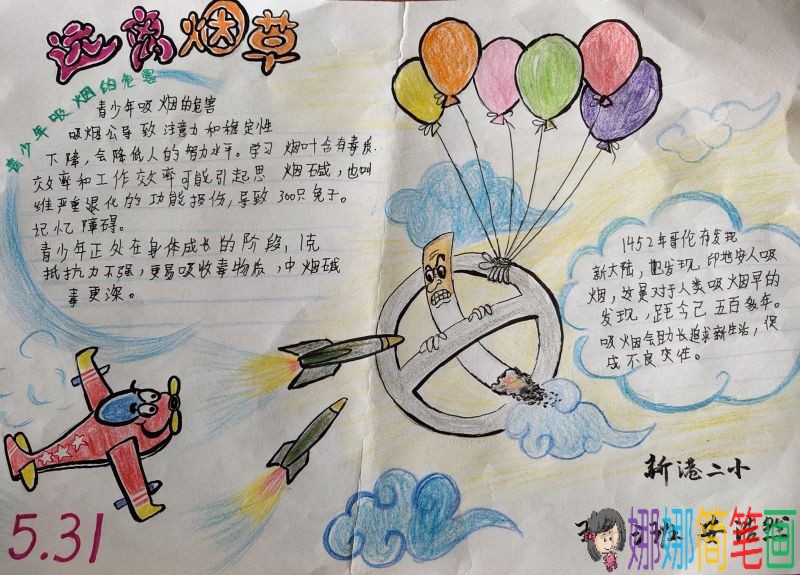 远离烟草
青少年吸烟的危害
青少年吸烟的危害
吸烟公导致注意力和稳定性
下降,会降低人的努力水平。学习
效率和工作效率可能引起思
维严重退化的功能损伤,导致
记忆障碍。
青少年正处在身体成长的阶段,
抵抗力不强,更易吸收毒物质,中
毒更深。
烟叶含有毒质
烟碱,也叫
300只兔子。
1克
烟碱
1452年哥伦布发现
新大陆,也发现印地安人吸
烟,这是对于人类吸烟早的
发现,距今已五百多年。
吸烟会助长追求新生活,促
成不良突性。
新港二小
班
5.31
娜娜简笔画